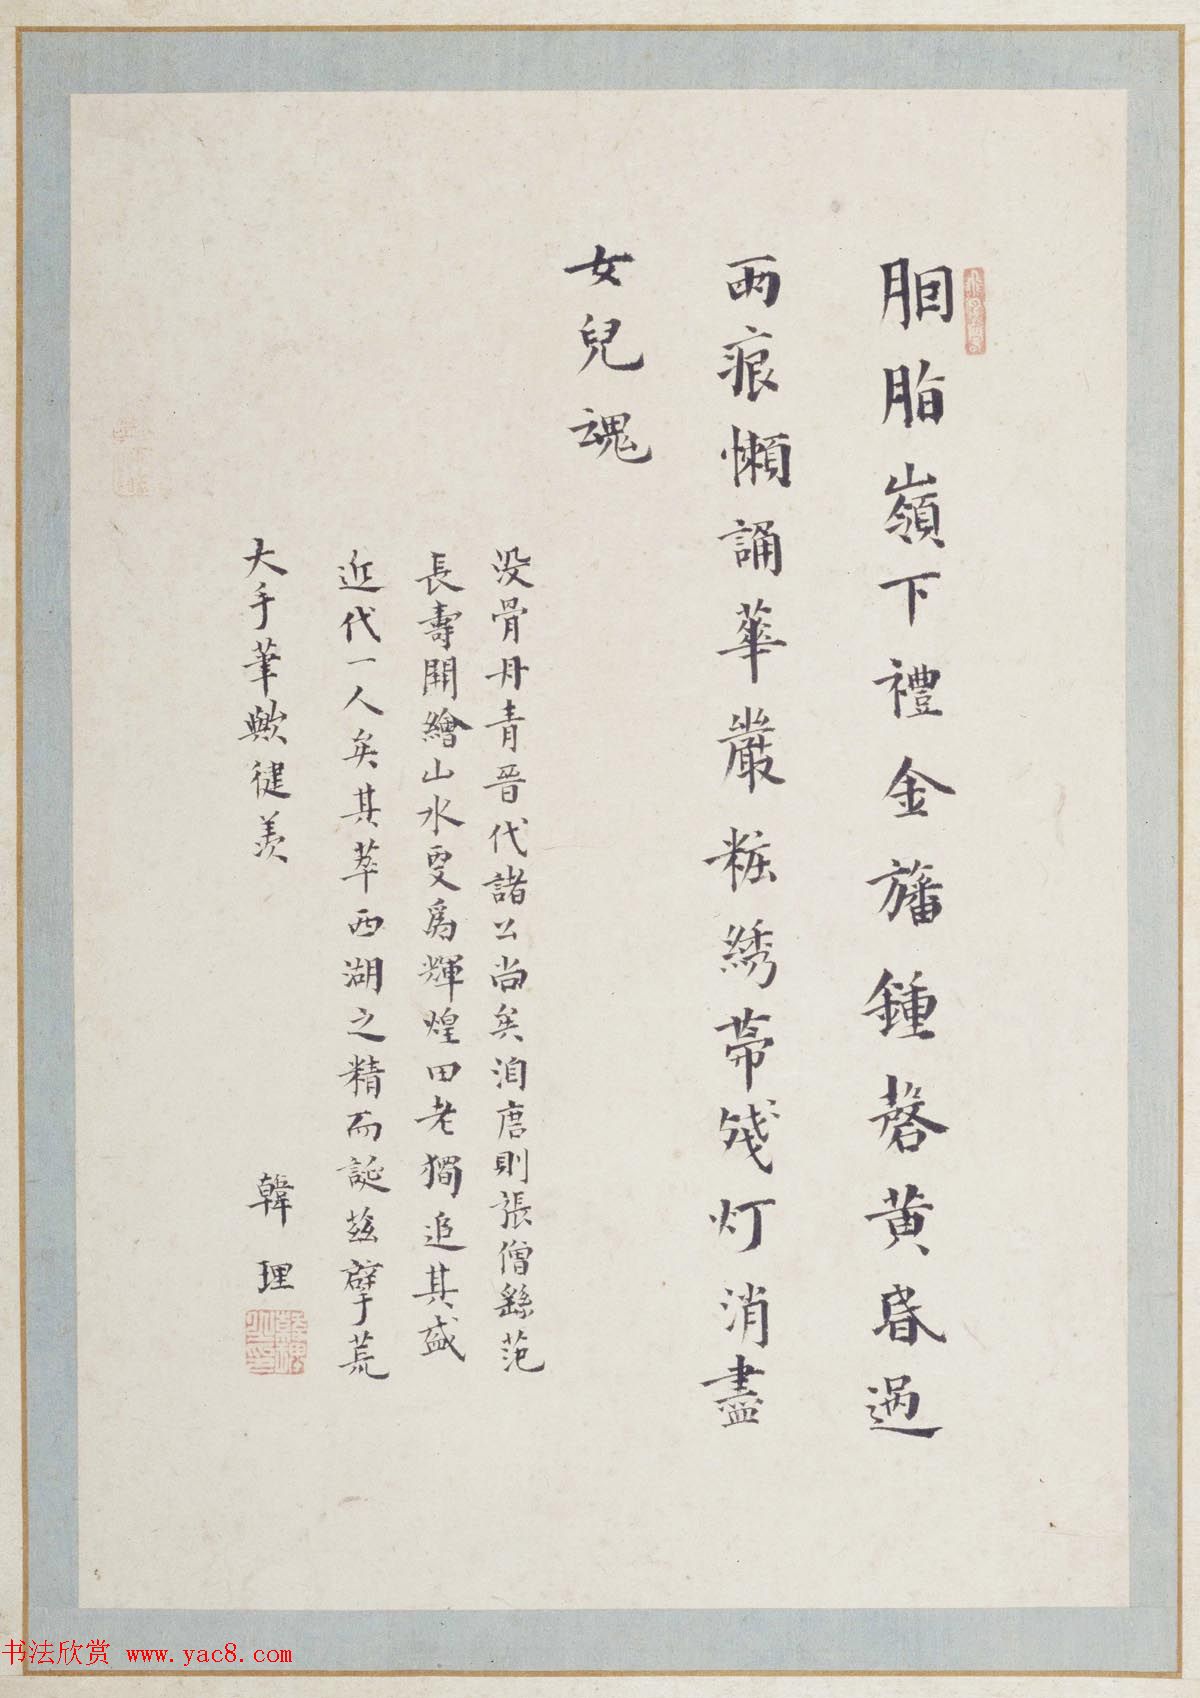 胭脂嶺下禮金旛鍾磬黃昏過
兩痕懶誦華嚴粧綉幕残灯消盡
女兒魂
没骨丹青晉代諸公尚矣洎唐則張僧繇范
長壽開繪山水更爲輝煌田老獨追其盛
近代一人矣其萃西湖之精而誕茲擘荒
大手筆歟健羨
韓理
书法欣赏 www.yac8.com